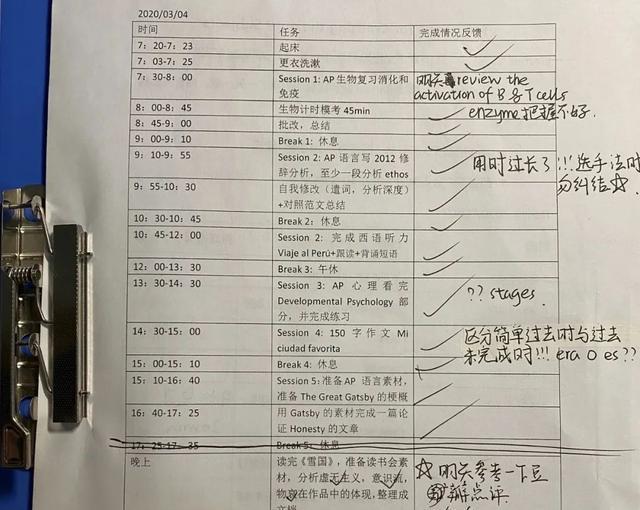 2020/03/04
时间 任务 完成情况反馈
7：20-7；23 起床
7：03-7；25 更衣洗漱
7：30-8：00 Session 1: AP 生物复习消化和
免疫
明天 review the
activation of B & T cells
8：00-8：45 生物计时模考 45min enzyme 把握不好.
8：45-9：00 批改，总结
9：00-9：10 Break 1：休息
9：10-9：55 Session 2：AP 语言写 2012 修
辞分析，至少一段分析 ethos
用时过长了!!! 选手法时
勿纠结☆
9：55-10：30 自我修改（遣词，分析深度）
+对照范文总结
10：30-10：45 Break 2：休息
10：45-12：00 Session 2: 完成西语听力
Viaje al Perú+跟读+背诵短语
12：00-13：30 Break 3：午休
13：30-14：30 Session 3: AP 心理看完
Developmental Psychology 部
分，并完成练习
?? stages.
14：30-15：00 Session 4: 150 字作文 Mi
ciudad favorita
区分简单过去时与过去
未完成时!!! era o es??
15：00-15：10 Break 4：休息
15：10-16：40 Session 5：准备 AP 语言素材，
准备 The Great Gatsby 的梗概
16：40-17：25 用 Gatsby 的素材完成一篇论
证 Honesty 的文章
17：25-17：35 Break 5：休息
晚上 读完《雪国》，准备读书会素
材，分析虚无主义，意识流，
物哀在作品中的体现，整理成
☆ 明天参考一下豆
瓣点评